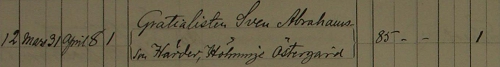 12 Mars 31 April 8 1 Gratialisten Sven Abrahams- 85 - - 1
son Härder, Höhninge Östergård